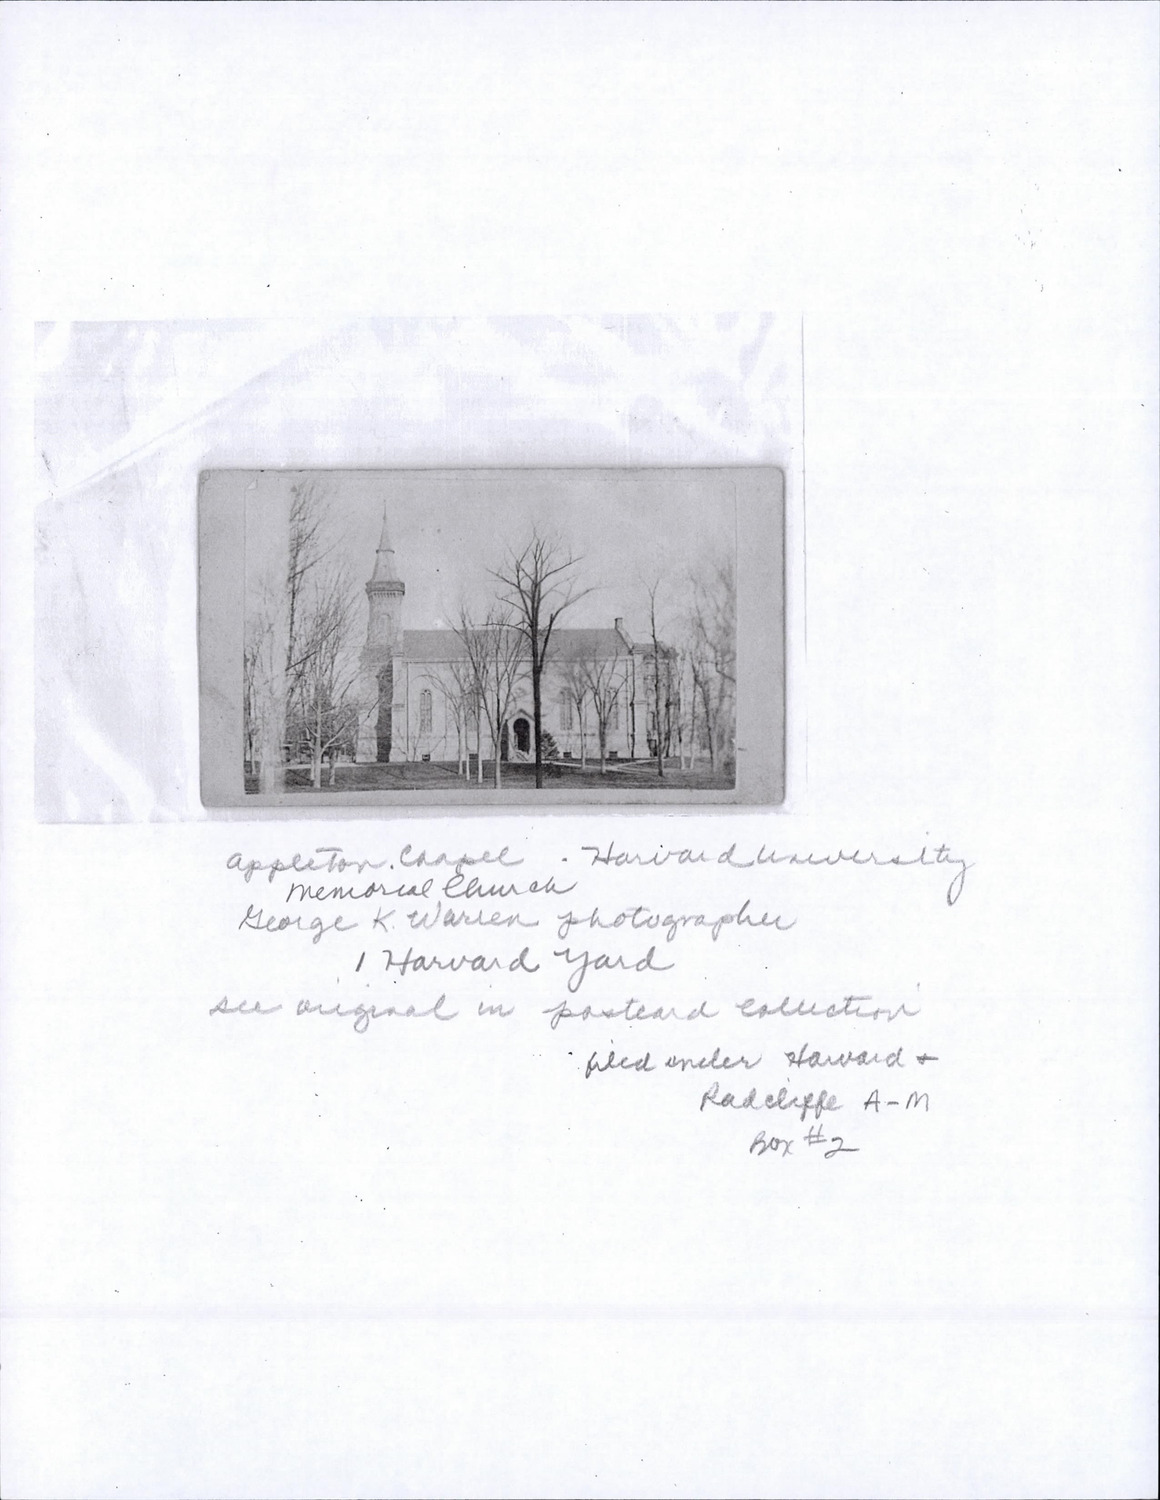 Appleton Chapel . Harvard University
Memorial Church
George K. Warren photographer
1 Harvard Yard
see original in postcard collection
filed under Harvard +
Radcliffe A-M
Box #2